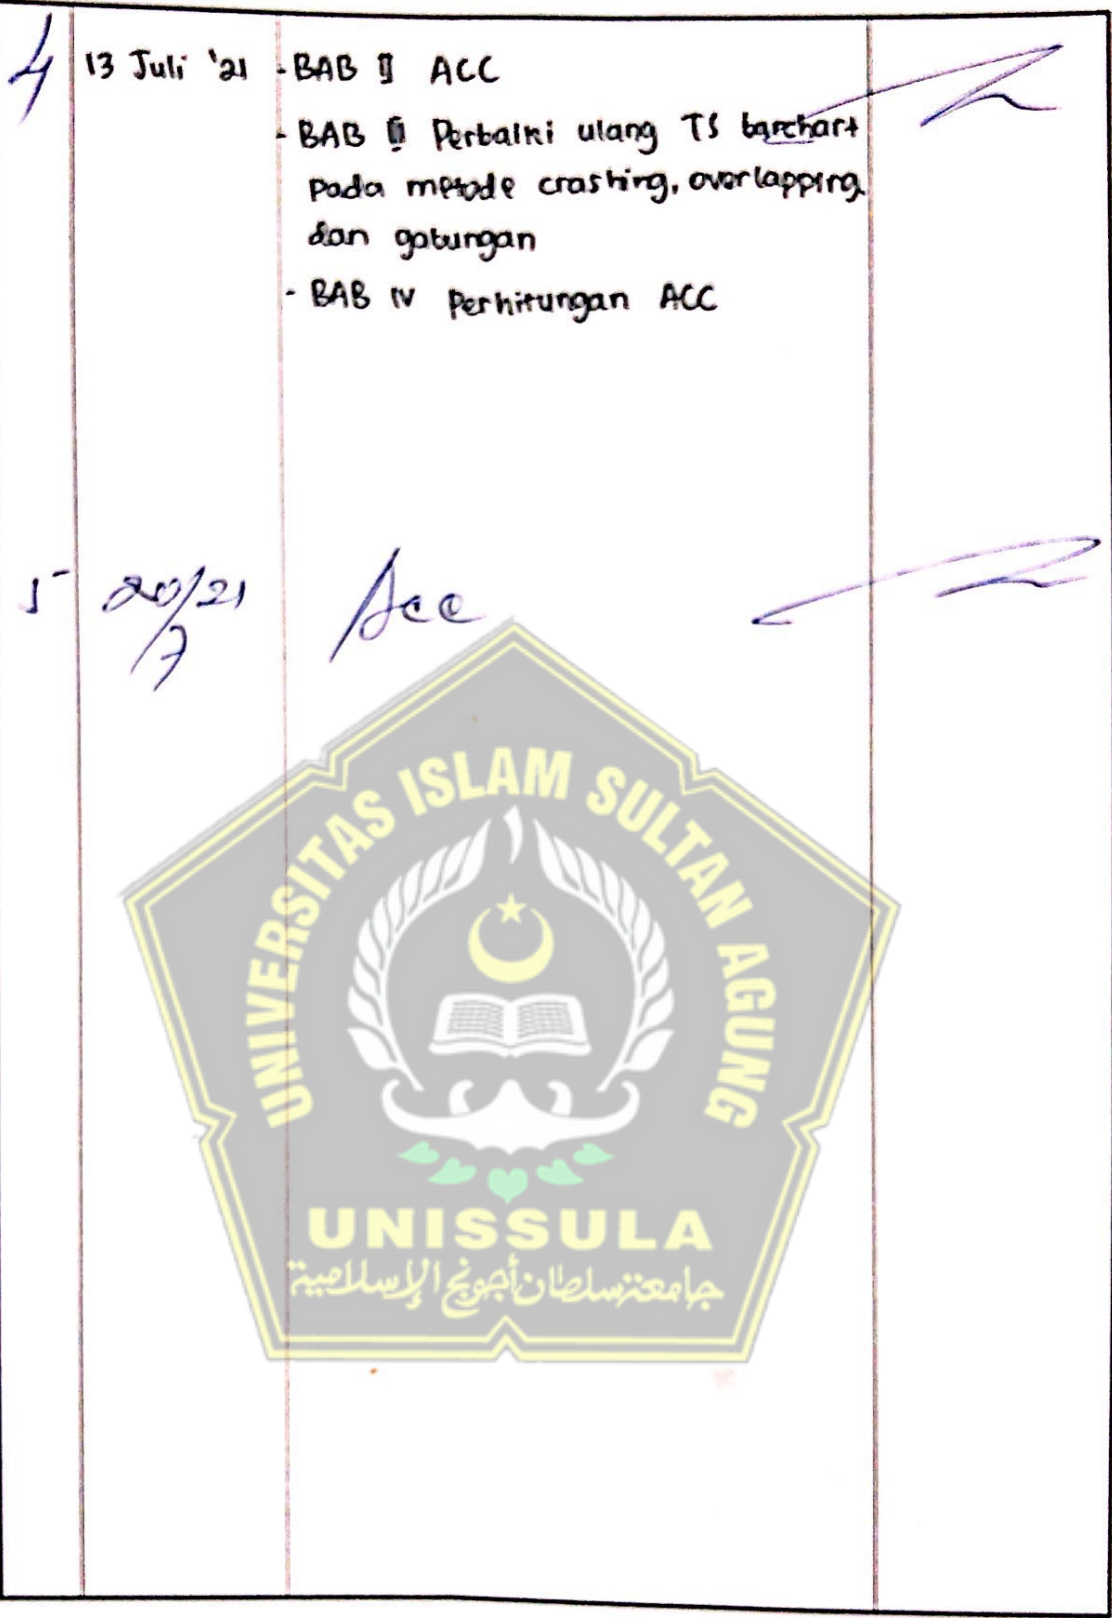 4 13 Juli '21 - BAB II ACC
- BAB III Perbaiki ulang TS barchart
pada metode crashing, overlapping
dan gabungan
- BAB IV Perhitungan ACC
5 20/7 21 Acc
UNIVERSITAS ISLAM SULTAN AGUNG
UNISSULA
جامعة سلطان أجونج الإسلامية